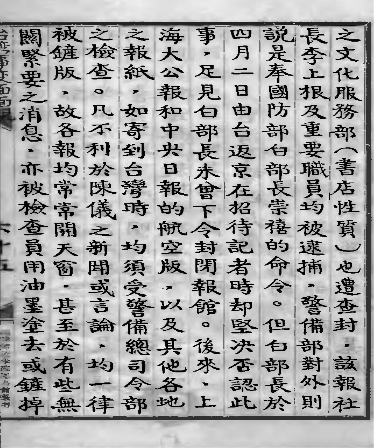 之文化服務部(書店性質)也遭查封，該報社
長李上根及重要職員均被逮捕，警備部對外則
說是奉國防部白部長崇禧的命令。但白部長於
四月二日由台返京在招待記者時却堅决否認此
事，足見白部長未曾下令封閉報館。後來，上
海大公報和中央日報的航空版，以及其他各地
之報紙，如寄到台灣時，均須受警備總司令部
之檢查。凡不利於陳儀之新聞或言論，均一律
被鏟版，故各報均常常開天窗，甚至於有些無
關緊要之消息，亦被檢查員用油墨塗去或鏟掉
六十五